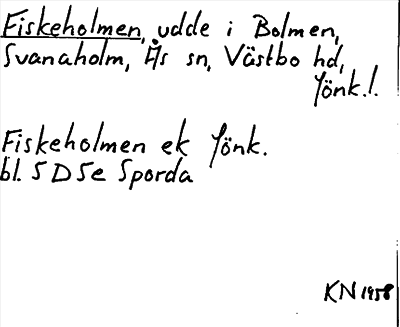 Fiskeholmen, udde i Bolmen,
Svanaholm, Ås sn, Västbo hd,
Jönk.l.
Fiskeholmen ek Jönk.
bl. 5 D 5e Sporda
KN 1958